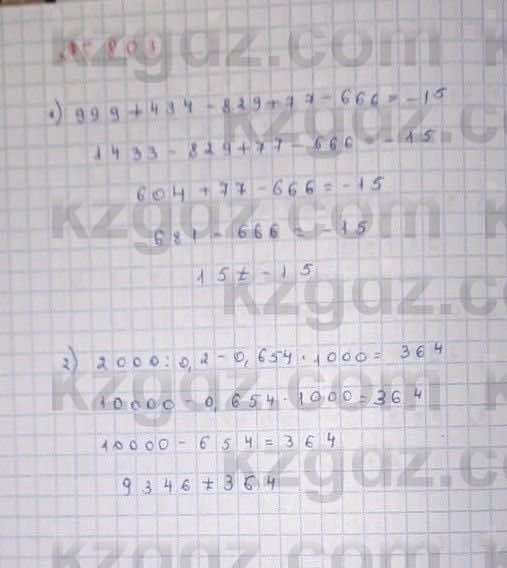 № 801
kzgdz.com
1) 999 + 434 - 829 + 77 - 666 = -15
1433 - 829 + 77 - 666 -15
604 + 77 - 666 = -15
kzgdz.com
681 - 666 = -15
15 ≠ -15
kzgdz.com
2) 2000 : 0,2 - 0,654 · 1000 = 364
10000 - 0,654 · 1000 = 364
kzgdz.com
10000 - 654 = 364
kzgdz.com
9346 ≠ 364
kzgdz.com